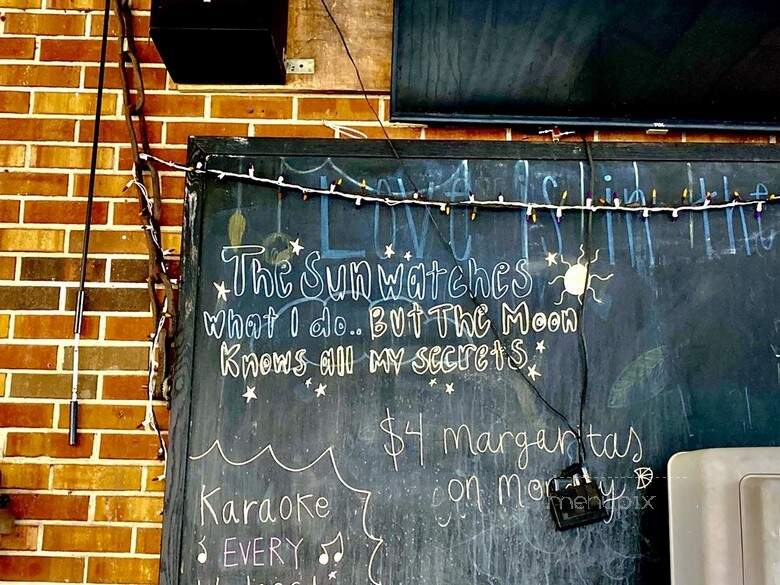 TCL
Love is in the
The Sun watches
what I do.. But The Moon
Knows all my secrets
$4 margaritas
on Monday
menupix
Karaoke
EVERY